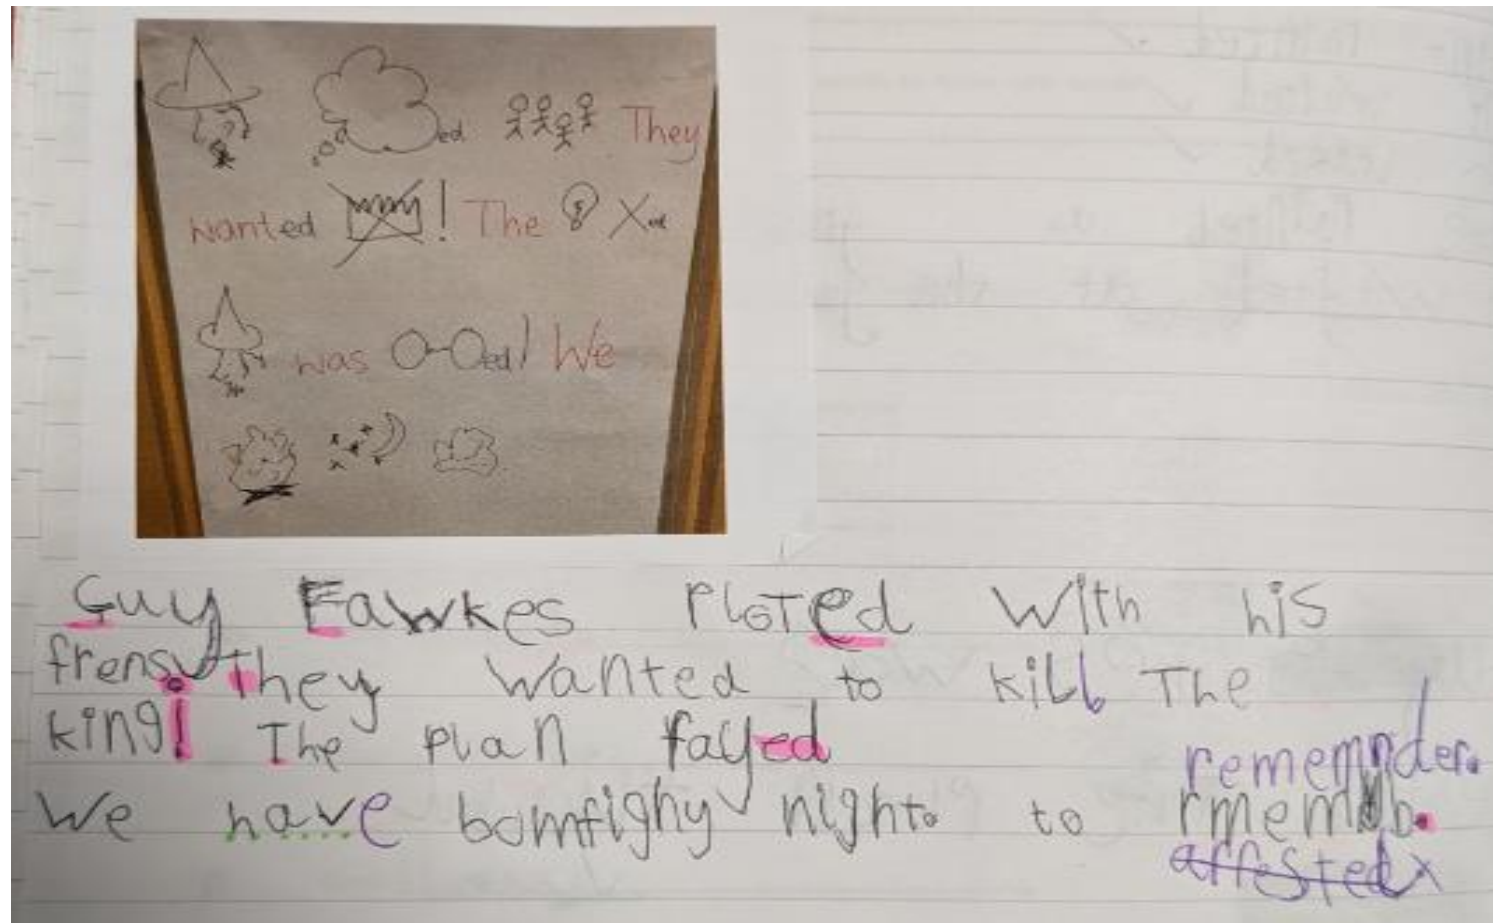 ed They
wanted ! The X ed
was ed! We
Guy Fawkes ploted with his
frens. They wanted to kill The
king! The plan fayed
rememnder.
We have bomfighy night. to rmemb.
arrested x